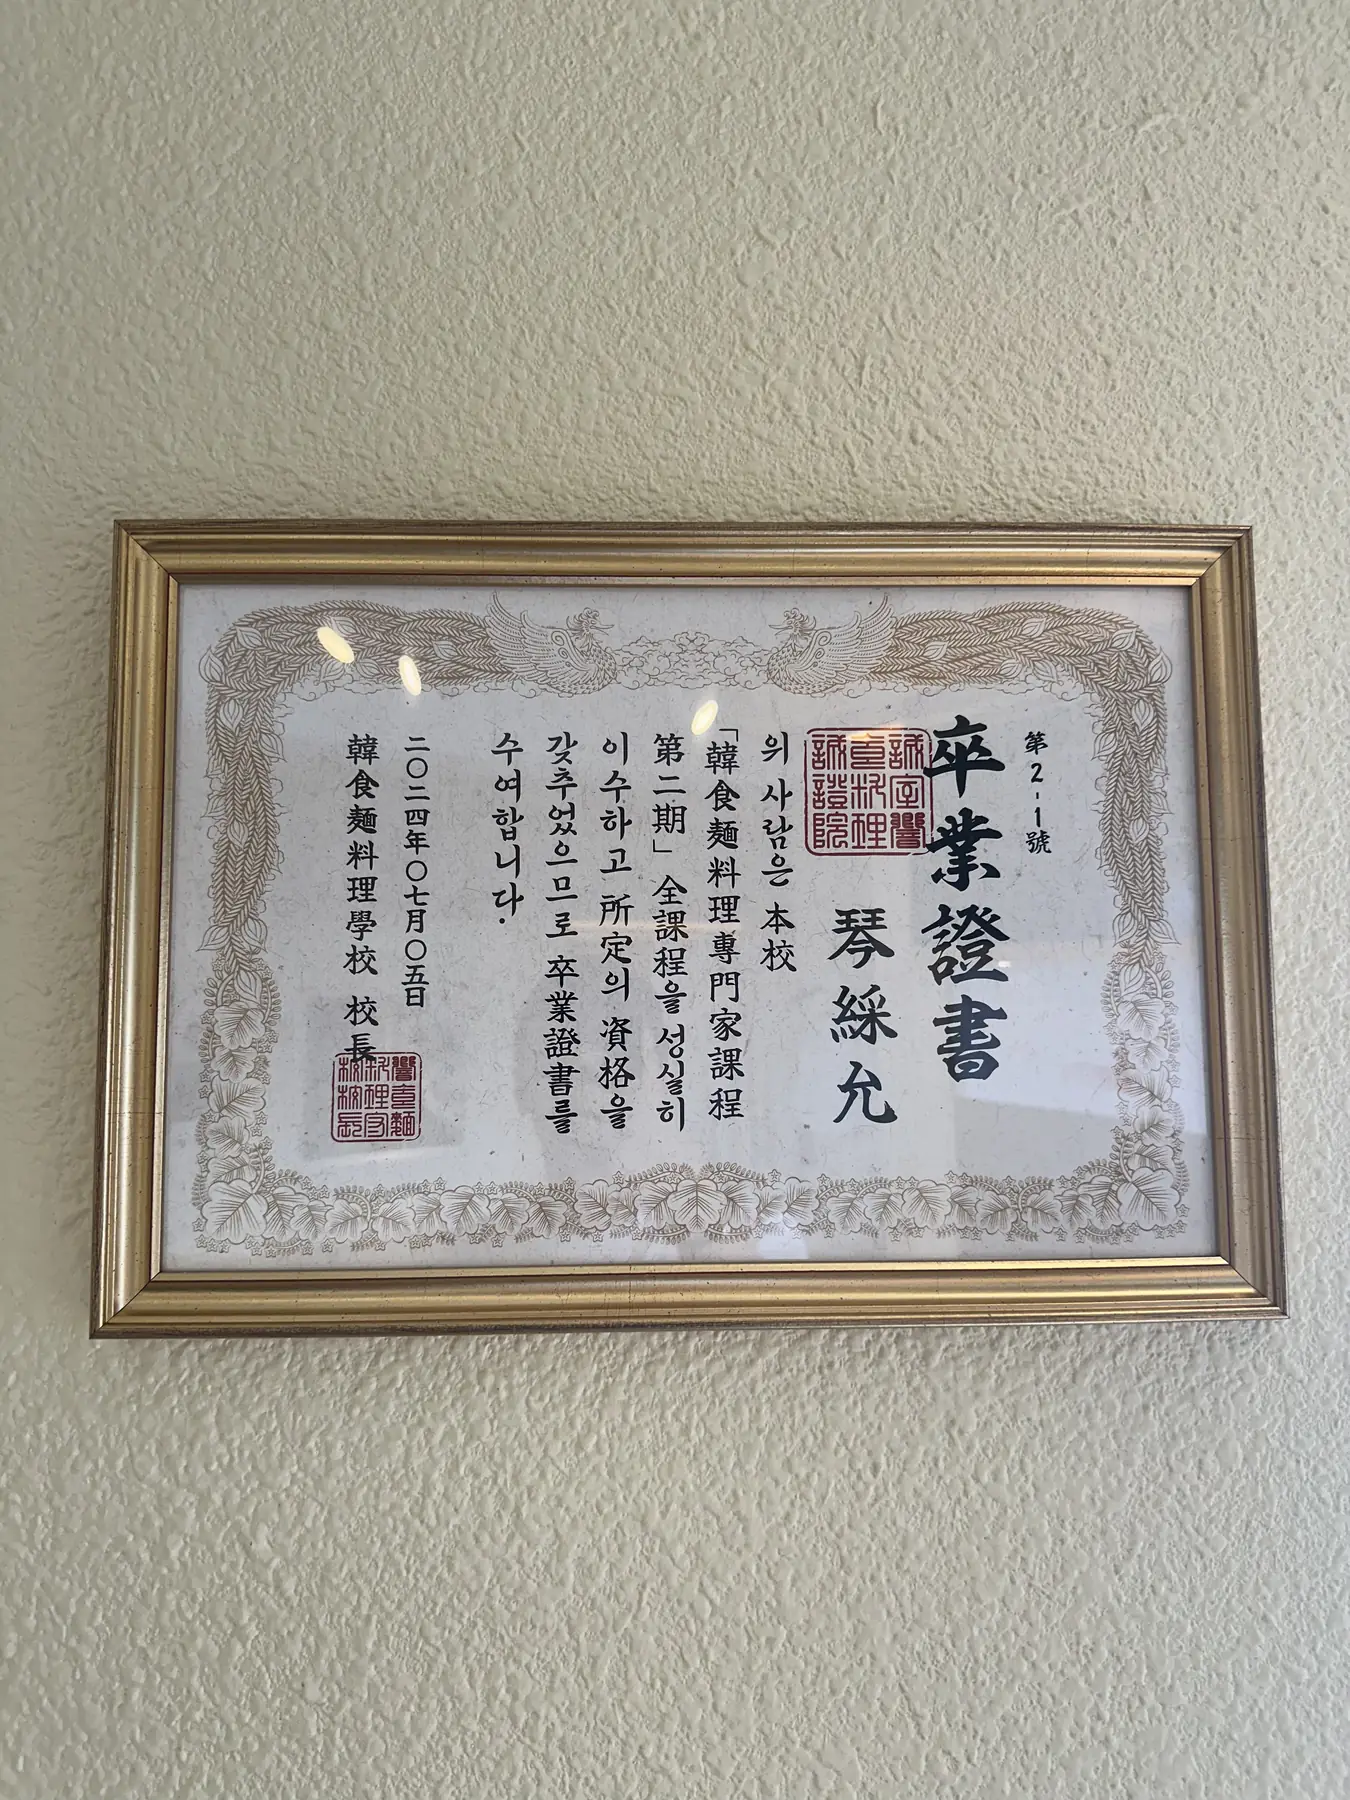 第2-1號
卒業證書
琴綵允
위 사람은 本校
「韓食麵料理專門家課程
第二期」 全課程을 성실히
이수하고 所定의 資格을
갖추었으므로 卒業證書를
수여합니다.
二〇二四年〇七月〇五日
韓食麵料理學校 校長